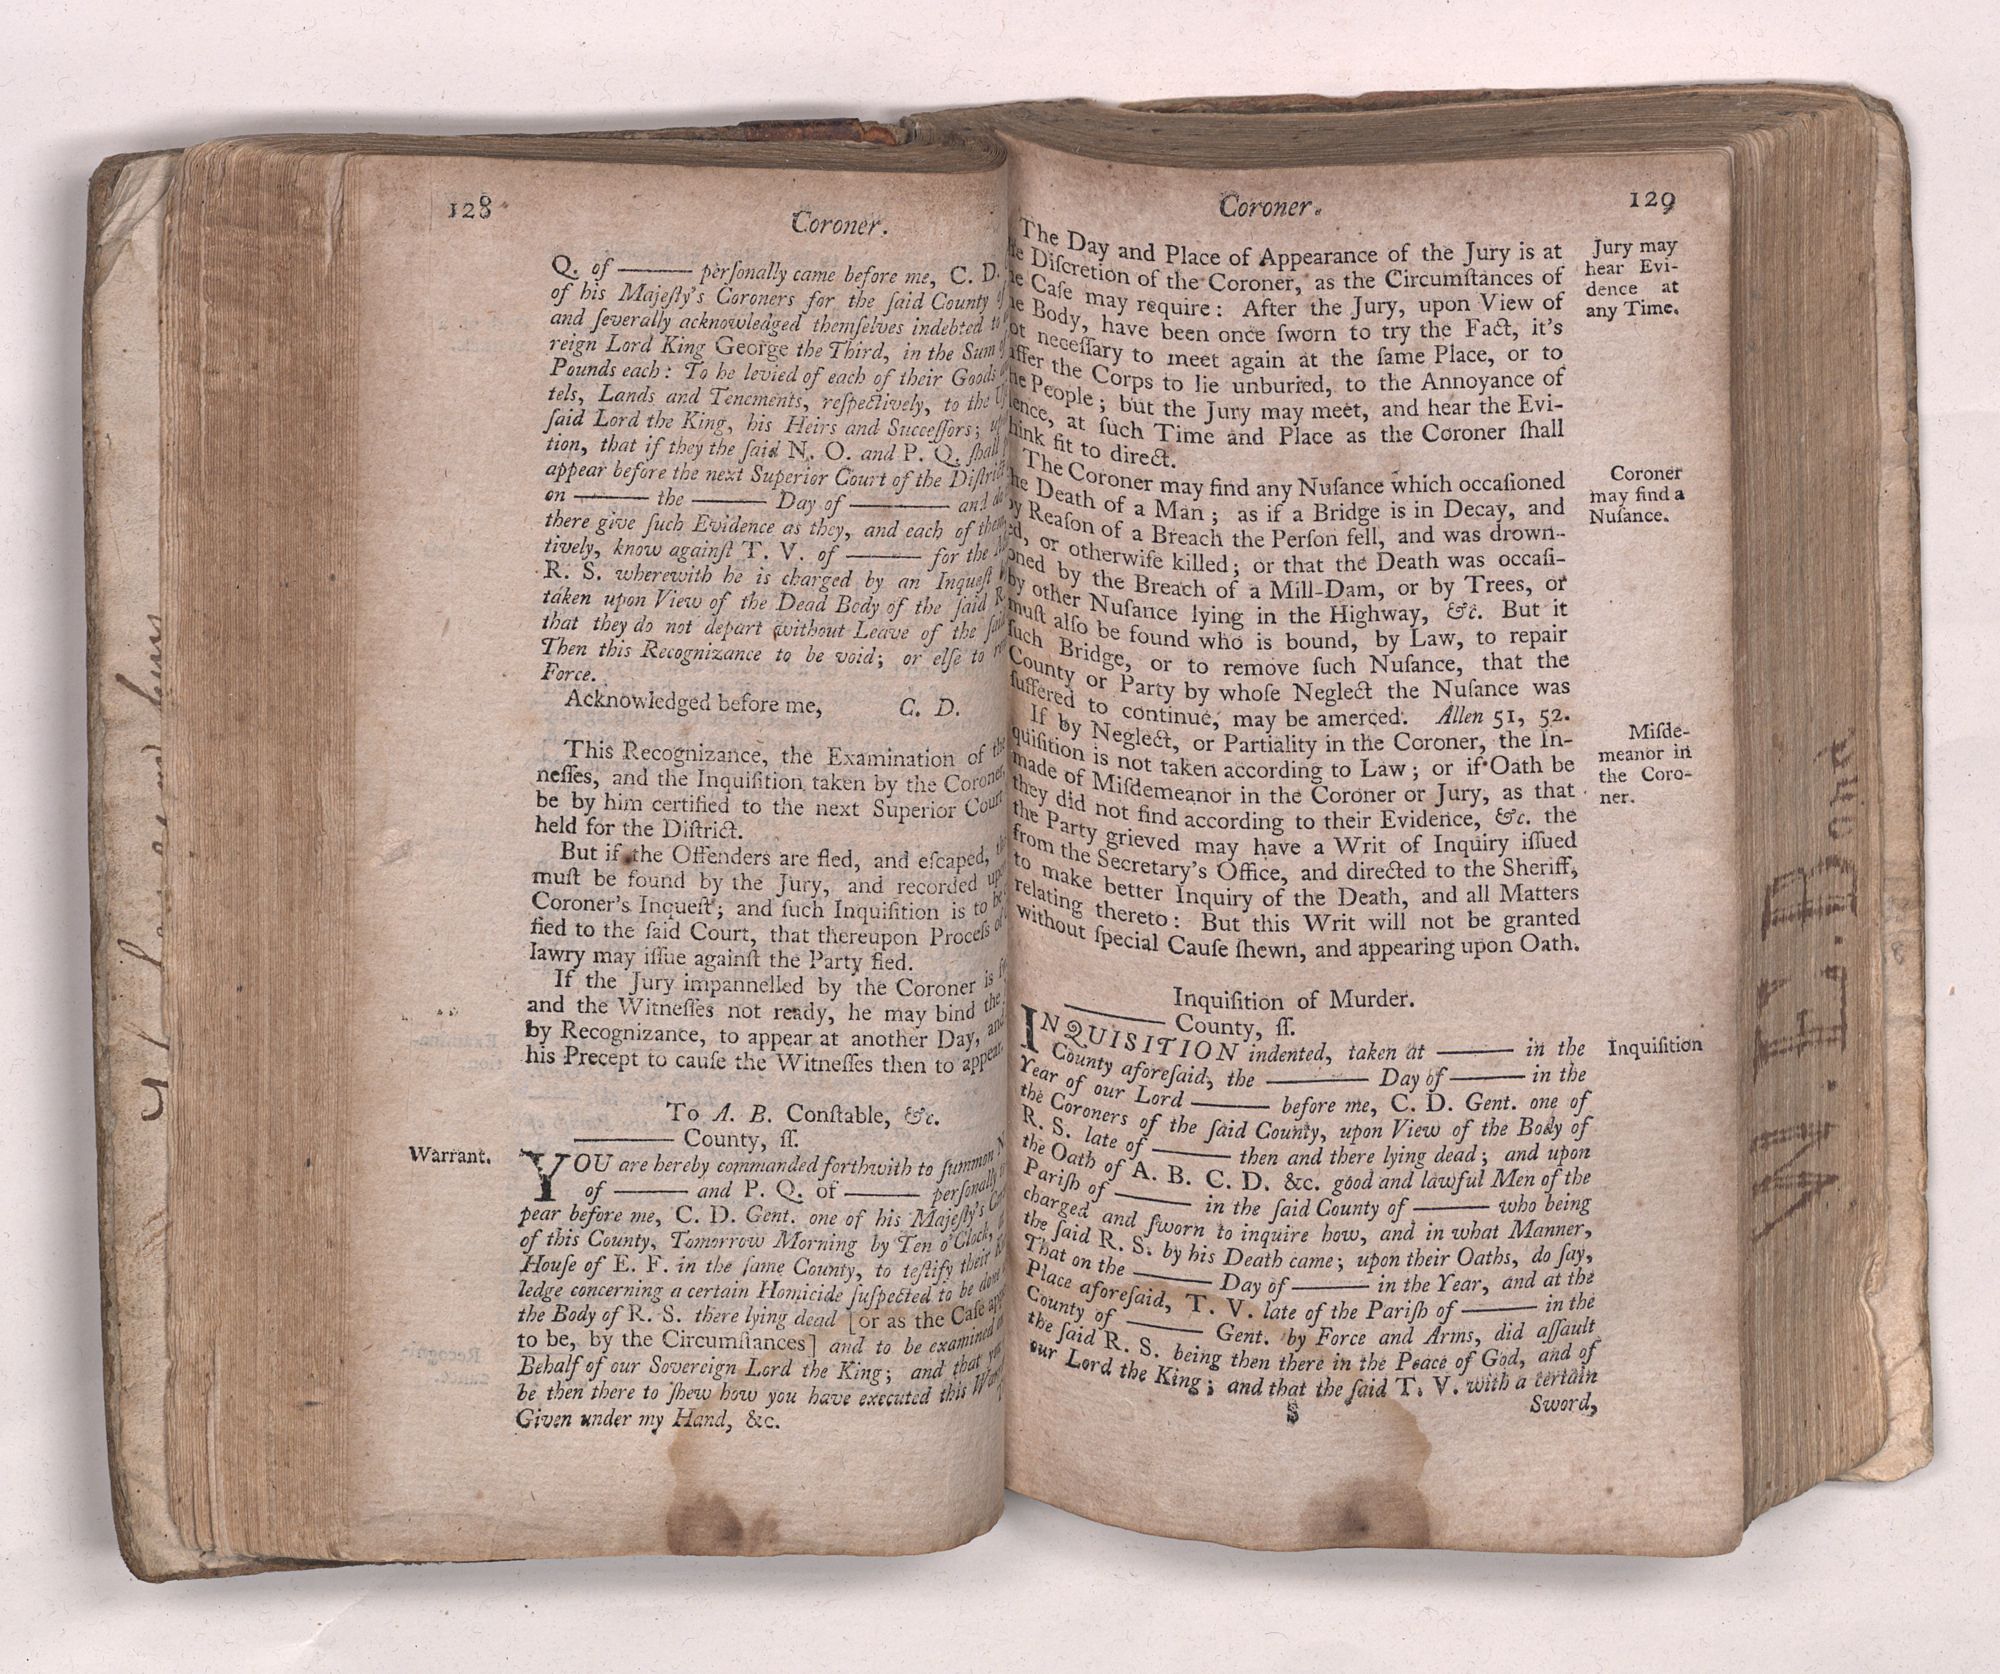 128
Coroner.
Q. of ——— perſonally came before me, C. D.
of his Majeſty's Coroners for the ſaid County
and ſeverally acknowledged themſelves indebted to
reign Lord King George the Third, in the Sum of
Pounds each: To be levied of each of their Goods
tels, Lands and Tenements, reſpectively, to the
ſaid Lord the King, his Heirs and Succeſſors;
tion, that if they the ſaid N. O. and P. Q. ſhall
appear before the next Superior Court of the Diſtrict
on ——— the ——— Day of ——— and do
there give ſuch Evidence as they, and each of them,
tively, know againſt T. V. of ——— for the
R. S. wherewith he is charged by an Inqueſt
taken upon View of the Dead Body of the ſaid R.
that they do not depart without Leave of the ſaid
Then this Recognizance to be void; or elſe to
Force.
Acknowledged before me, C. D.
This Recognizance, the Examination of the
neſſes, and the Inquiſition taken by the Coroner,
be by him certified to the next Superior Court
held for the Diſtrict.
But if the Offenders are fled, and eſcaped,
muſt be found by the Jury, and recorded upon
Coroner's Inqueſt; and ſuch Inquiſition is to be
fied to the ſaid Court, that thereupon Proceſs of
lawry may iſſue againſt the Party fled.
If the Jury impannelled by the Coroner is
and the Witneſſes not ready, he may bind the
by Recognizance, to appear at another Day, and
his Precept to cauſe the Witneſſes then to appear.
To A. B. Conſtable, &c.
——— County, ſſ.
Warrant.
YOU are hereby commanded forthwith to ſummon N
of ——— and P. Q. of ——— perſonally
pear before me, C. D. Gent. one of his Majeſty's
of this County, Tomorrow Morning by Ten o'Clock,
Houſe of E. F. in the ſame County, to teſtify their
ledge concerning a certain Homicide ſuſpected to be done
the Body of R. S. there lying dead [or as the Caſe
to be, by the Circumſtances] and to be examined
Behalf of our Sovereign Lord the King; and that you
be then there to ſhew how you have executed this
Given under my Hand, &c.
Coroner.
129
The Day and Place of Appearance of the Jury is at
Diſcretion of the Coroner, as the Circumſtances of
Caſe may require: After the Jury, upon View of
Body, have been once ſworn to try the Fact, it's
neceſſary to meet again at the ſame Place, or to
the Corps to lie unburied, to the Annoyance of
People; but the Jury may meet, and hear the Evi-
dence, at ſuch Time and Place as the Coroner ſhall
think fit to direct.
Jury may
hear Evi-
dence at
any Time.
The Coroner may find any Nuſance which occaſioned
the Death of a Man; as if a Bridge is in Decay, and
by Reaſon of a Breach the Perſon fell, and was drown-
ed, or otherwiſe killed; or that the Death was occaſi-
oned by the Breach of a Mill-Dam, or by Trees, or
by other Nuſance lying in the Highway, &c. But it
muſt alſo be found who is bound, by Law, to repair
ſuch Bridge, or to remove ſuch Nuſance, that the
County or Party by whoſe Neglect the Nuſance was
ſuffered to continue, may be amerced. Allen 51, 52.
Coroner
may find a
Nuſance.
If by Neglect, or Partiality in the Coroner, the In-
quiſition is not taken according to Law; or if Oath be
made of Miſdemeanor in the Coroner or Jury, as that
they did not find according to their Evidence, &c. the
the Party grieved may have a Writ of Inquiry iſſued
from the Secretary's Office, and directed to the Sheriff,
to make better Inquiry of the Death, and all Matters
relating thereto: But this Writ will not be granted
without ſpecial Cauſe ſhewn, and appearing upon Oath.
Miſde-
meanor in
the Coro-
ner.
Inquiſition of Murder.
——— County, ſſ.
INQUISITION indented, taken at ——— in the
County aforeſaid, the ——— Day of ——— in the
Year of our Lord ——— before me, C. D. Gent. one of
the Coroners of the ſaid County, upon View of the Body of
R. S. late of ——— then and there lying dead; and upon
the Oath of A. B. C. D. &c. good and lawful Men of the
Pariſh of ——— in the ſaid County of ——— who being
charged and ſworn to inquire how, and in what Manner,
the ſaid R. S. by his Death came; upon their Oaths, do ſay,
That on the ——— Day of ——— in the Year, and at the
Place aforeſaid, T. V. late of the Pariſh of ——— in the
County of ——— Gent. by Force and Arms, did aſſault
the ſaid R. S. being then there in the Peace of God, and of
our Lord the King; and that the ſaid T. V. with a certain
Inquiſition
S
Sword,